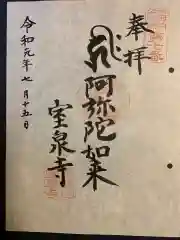 奉拝
阿弥陀如来
室泉寺
令和元年七月十五日